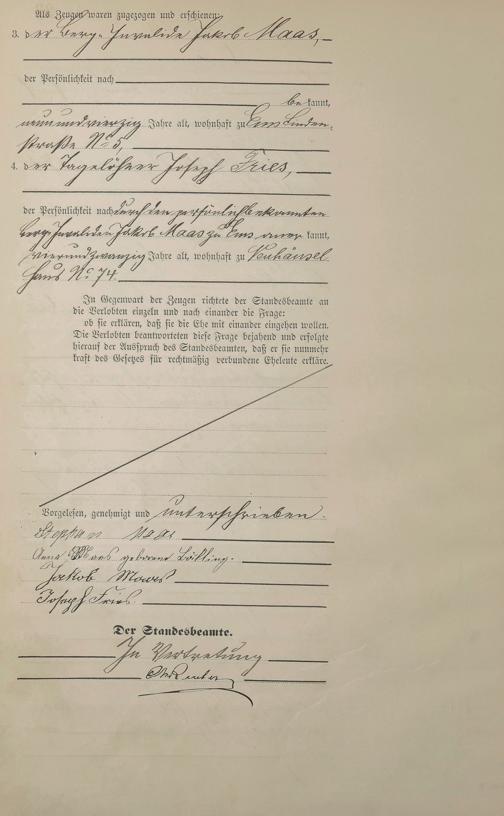 Als Zeugen waren zugezogen und erschienen:
3. der Berg-Invalide Jakob Maas,
der Persönlichkeit nach
bekannt,
neunundvierzig Jahre alt, wohnhaft zu Ems Linden-
straße No 5,
4. der Tagelöhner Joseph Fries,
der Persönlichkeit nach durch den persönlich bekannten
Berg-Invaliden Jakob Maas zu Ems anerkannt,
vierundzwanzig Jahre alt, wohnhaft zu Neuhäusel
Haus No 74.
In Gegenwart der Zeugen richtete der Standesbeamte an
die Verlobten einzeln und nach einander die Frage:
ob sie erklären, daß sie die Ehe mit einander eingehen wollen.
Die Verlobten beantworteten diese Frage bejahend und erfolgte
hierauf der Ausspruch des Standesbeamten, daß er sie nunmehr
kraft des Gesetzes für rechtmäßig verbundene Eheleute erkläre.
Vorgelesen, genehmigt und unterschrieben.
Stephan Maas
Anna Maas geborene
Jakob Maas
Joseph Fries.
Der Standesbeamte.
In Vertretung